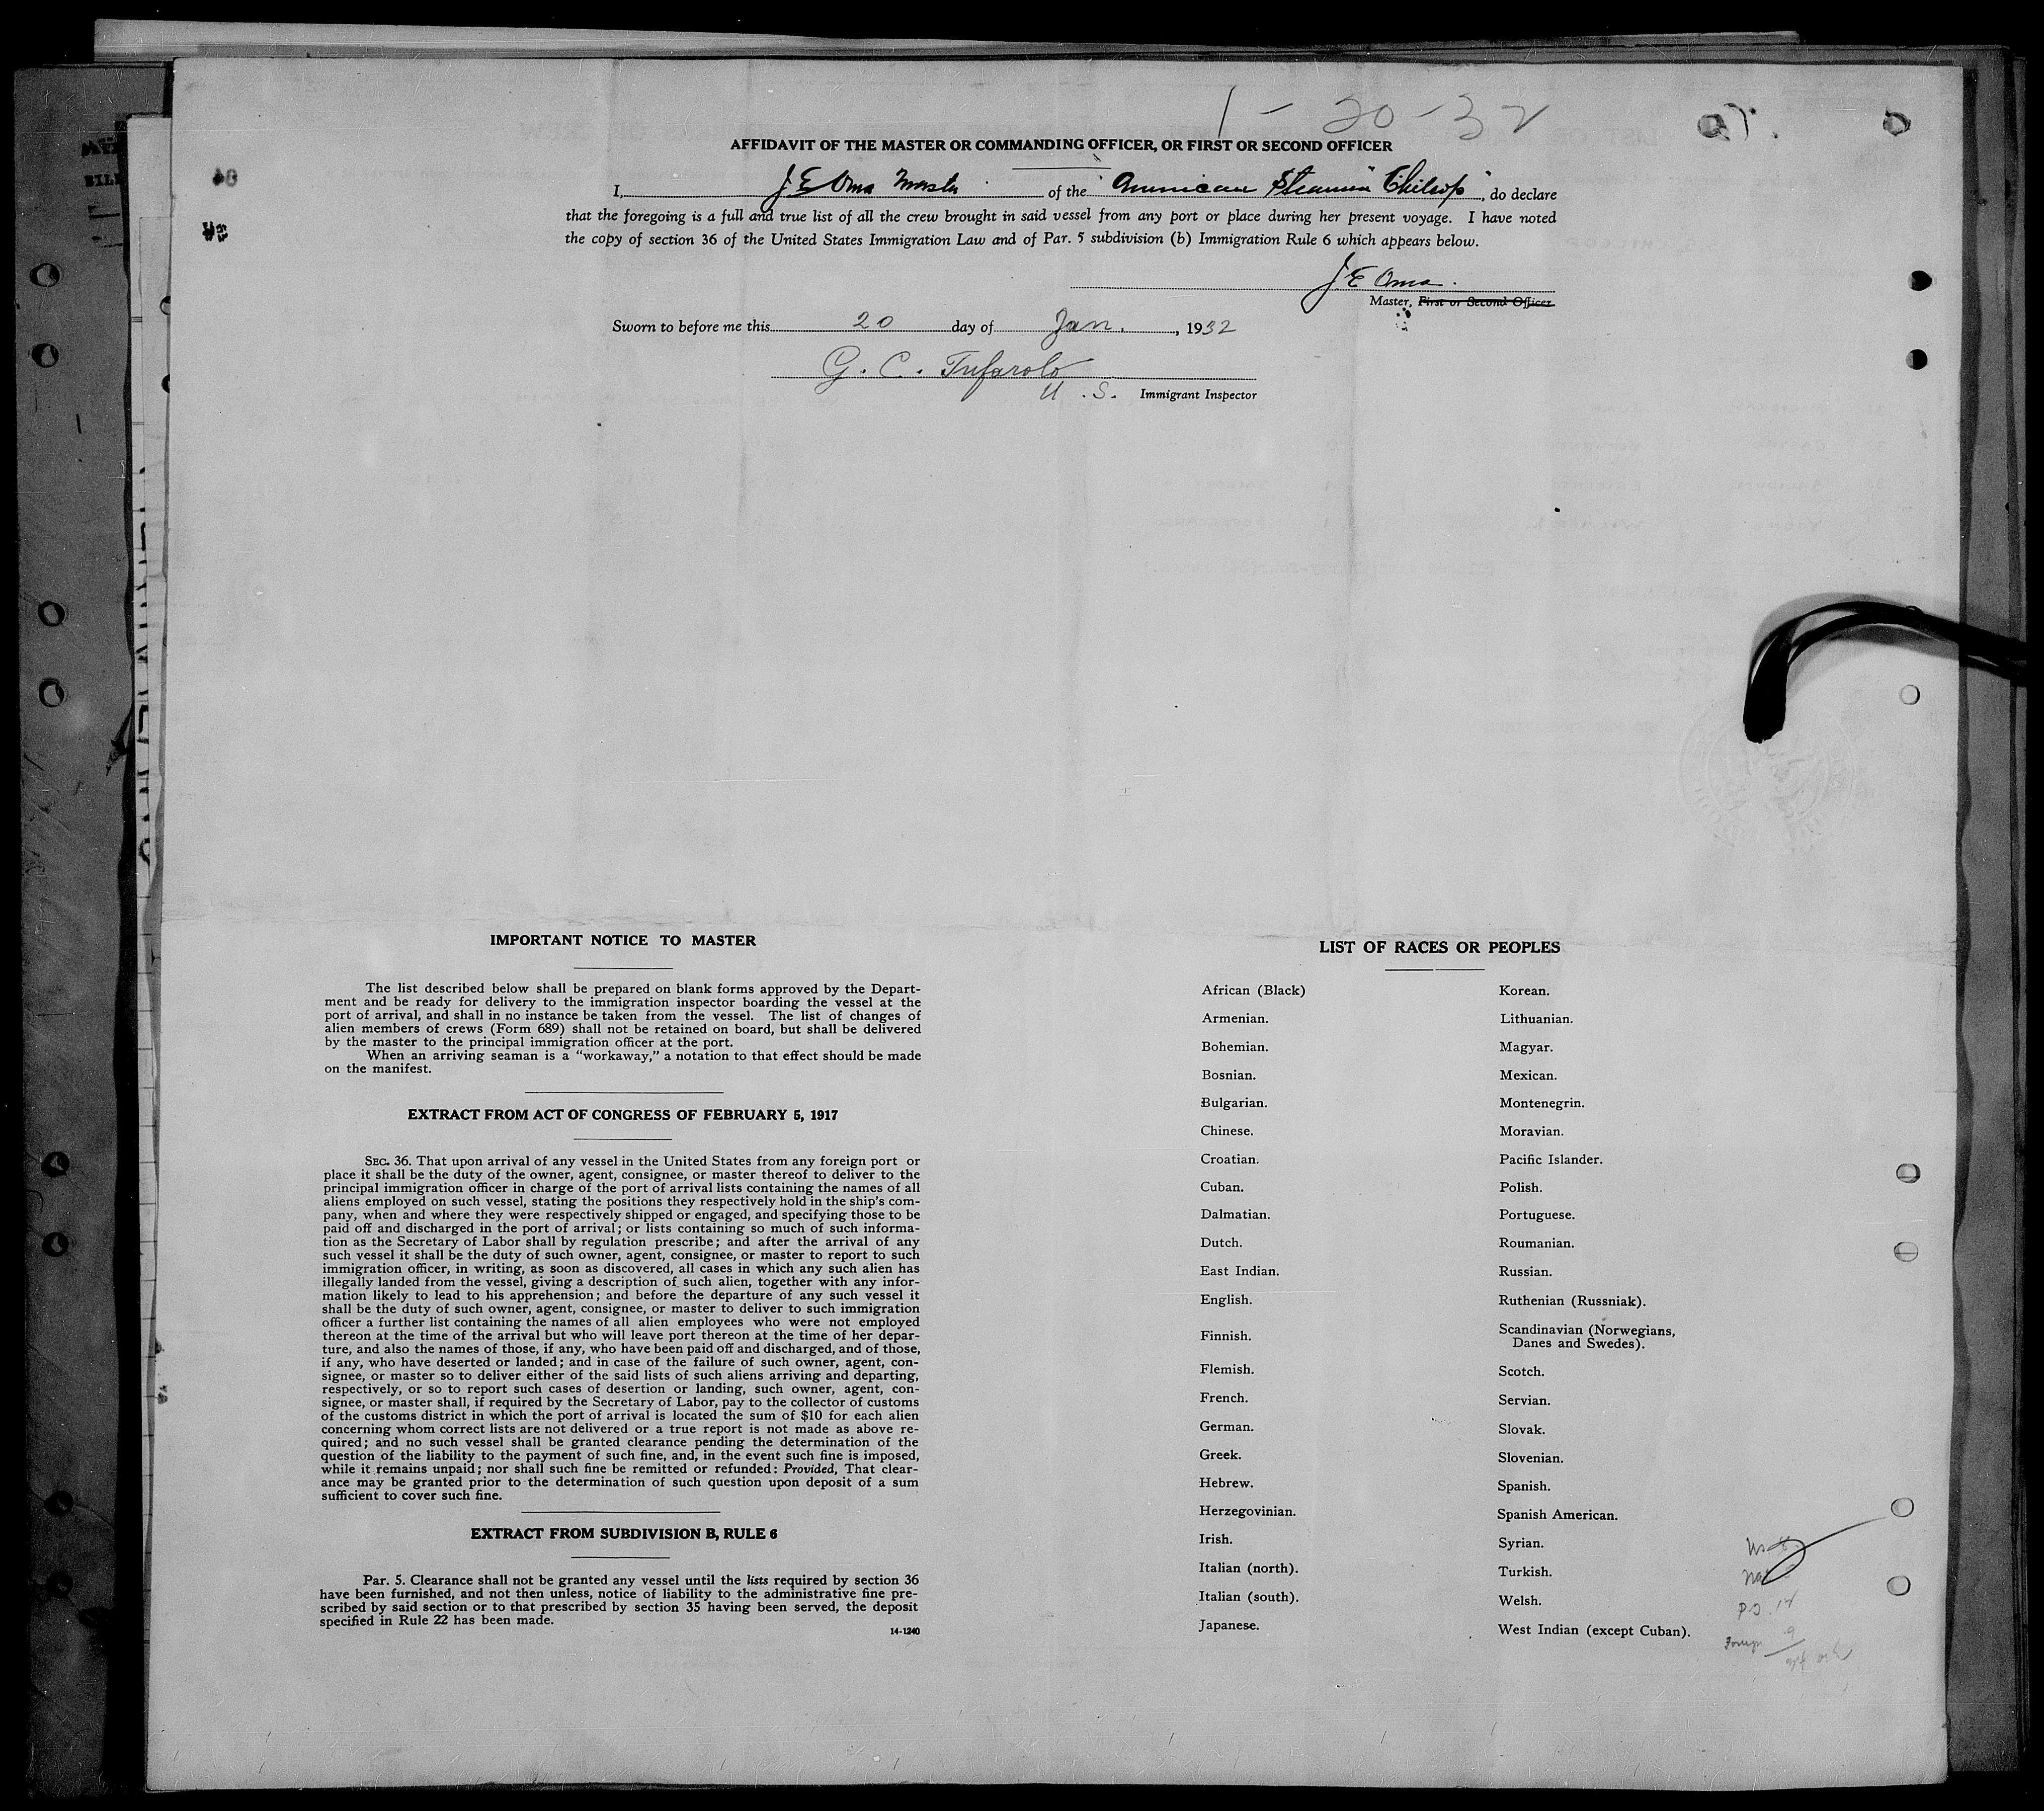 1-20-32
AFFIDAVIT OF THE MASTER OR COMMANDING OFFICER, OR FIRST OR SECOND OFFICER
I, J E Oma Master of the American Steamer "Chilsop", do declare
that the foregoing is a full and true list of all the crew brought in said vessel from any port or place during her present voyage. I have noted
the copy of section 36 of the United States Immigration Law and of Par. 5 subdivision (b) Immigration Rule 6 which appears below.
J E Oma.
Master, First or Second Officer
Sworn to before me this 20 day of Jan., 1932
G. C. Tufarolo
U.S. Immigrant Inspector
IMPORTANT NOTICE TO MASTER
The list described below shall be prepared on blank forms approved by the Depart-
ment and be ready for delivery to the immigration inspector boarding the vessel at the
port of arrival, and shall in no instance be taken from the vessel. The list of changes of
alien members of crews (Form 689) shall not be retained on board, but shall be delivered
by the master to the principal immigration officer at the port.
When an arriving seaman is a "workaway," a notation to that effect should be made
on the manifest.
EXTRACT FROM ACT OF CONGRESS OF FEBRUARY 5, 1917
SEC. 36. That upon arrival of any vessel in the United States from any foreign port or
place it shall be the duty of the owner, agent, consignee, or master thereof to deliver to the
principal immigration officer in charge of the port of arrival lists containing the names of all
aliens employed on such vessel, stating the positions they respectively hold in the ship's com-
pany, when and where they were respectively shipped or engaged, and specifying those to be
paid off and discharged in the port of arrival; or lists containing so much of such informa-
tion as the Secretary of Labor shall by regulation prescribe; and after the arrival of any
such vessel it shall be the duty of such owner, agent, consignee, or master to report to such
immigration officer, in writing, as soon as discovered, all cases in which any such alien has
illegally landed from the vessel, giving a description of such alien, together with any infor-
mation likely to lead to his apprehension; and before the departure of any such vessel it
shall be the duty of such owner, agent, consignee, or master to deliver to such immigration
officer a further list containing the names of all alien employees who were not employed
thereon at the time of the arrival but who will leave port thereon at the time of her depar-
ture, and also the names of those, if any, who have been paid off and discharged, and of those,
if any, who have deserted or landed; and in case of the failure of such owner, agent, con-
signee, or master so to deliver either of the said lists of such aliens arriving and departing,
respectively, or so to report such cases of desertion or landing, such owner, agent, con-
signee, or master shall, if required by the Secretary of Labor, pay to the collector of customs
of the customs district in which the port of arrival is located the sum of $10 for each alien
concerning whom correct lists are not delivered or a true report is not made as above re-
quired; and no such vessel shall be granted clearance pending the determination of the
question of the liability to the payment of such fine, and, in the event such fine is imposed,
while it remains unpaid; nor shall such fine be remitted or refunded: Provided, That clear-
ance may be granted prior to the determination of such question upon deposit of a sum
sufficient to cover such fine.
EXTRACT FROM SUBDIVISION B, RULE 6
Par. 5. Clearance shall not be granted any vessel until the lists required by section 36
have been furnished, and not then unless, notice of liability to the administrative fine pre-
scribed by said section or to that prescribed by section 35 having been served, the deposit
specified in Rule 22 has been made.
14-1240
LIST OF RACES OR PEOPLES
African (Black)
Armenian.
Bohemian.
Bosnian.
Bulgarian.
Chinese.
Croatian.
Cuban.
Dalmatian.
Dutch.
East Indian.
English.
Finnish.
Flemish.
French.
German.
Greek.
Hebrew.
Herzegovinian.
Irish.
Italian (north).
Italian (south).
Japanese.
Korean.
Lithuanian.
Magyar.
Mexican.
Montenegrin.
Moravian.
Pacific Islander.
Polish.
Portuguese.
Roumanian.
Russian.
Ruthenian (Russniak).
Scandinavian (Norwegians,
Danes and Swedes).
Scotch.
Servian.
Slovak.
Slovenian.
Spanish.
Spanish American.
Syrian.
Turkish.
Welsh.
West Indian (except Cuban).